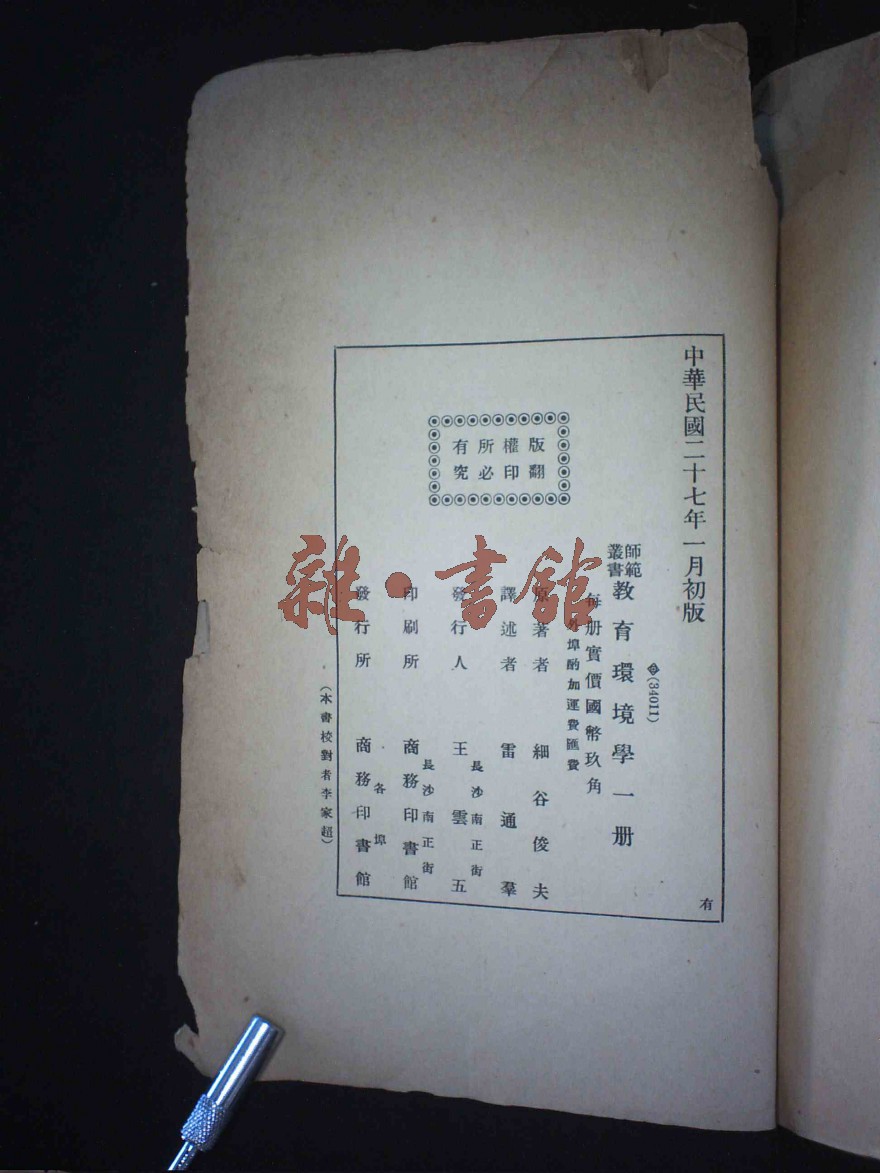 中華民國二十七年一月初版
(34011)
師範叢書 教育環境學一册
每册實價國幣玖角
外埠酌加運費匯費
原著者 細谷俊夫
譯述者 雷通羣
發行人 王雲五
長沙南正街
印刷所 商務印書館
長沙南正街
發行所 商務印書館
各埠
版權所有
翻印必究
(本書校對者李家超)
有
雜·書館